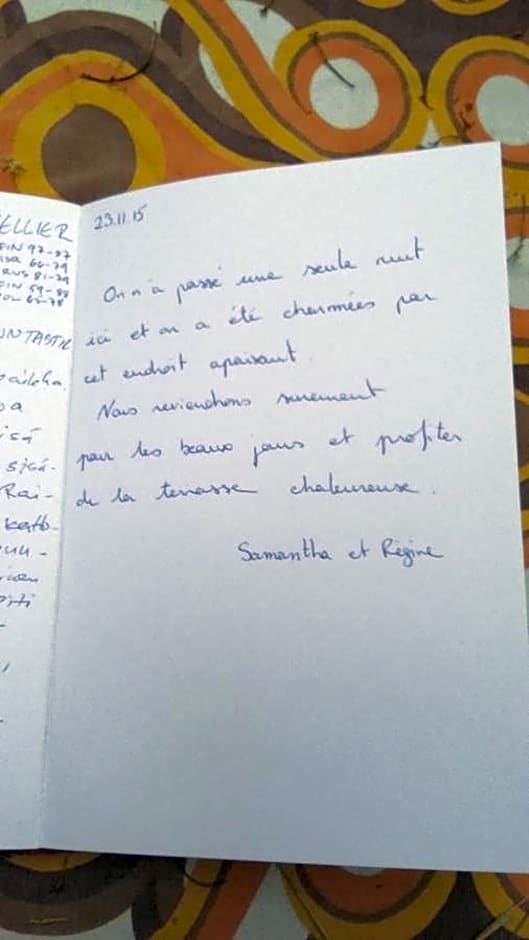 ELLIER
FIN 97-97
66-79
RUS 81-79
FIN 59-88
63-78
23.11.15
On n'a passé une seule nuit
ici et on a été charmées par
cet endroit apaisant.
Nous reviendrons surement
pour les beaux jours et profiter
de la terrasse chaleureuse.
Samantha et Régine